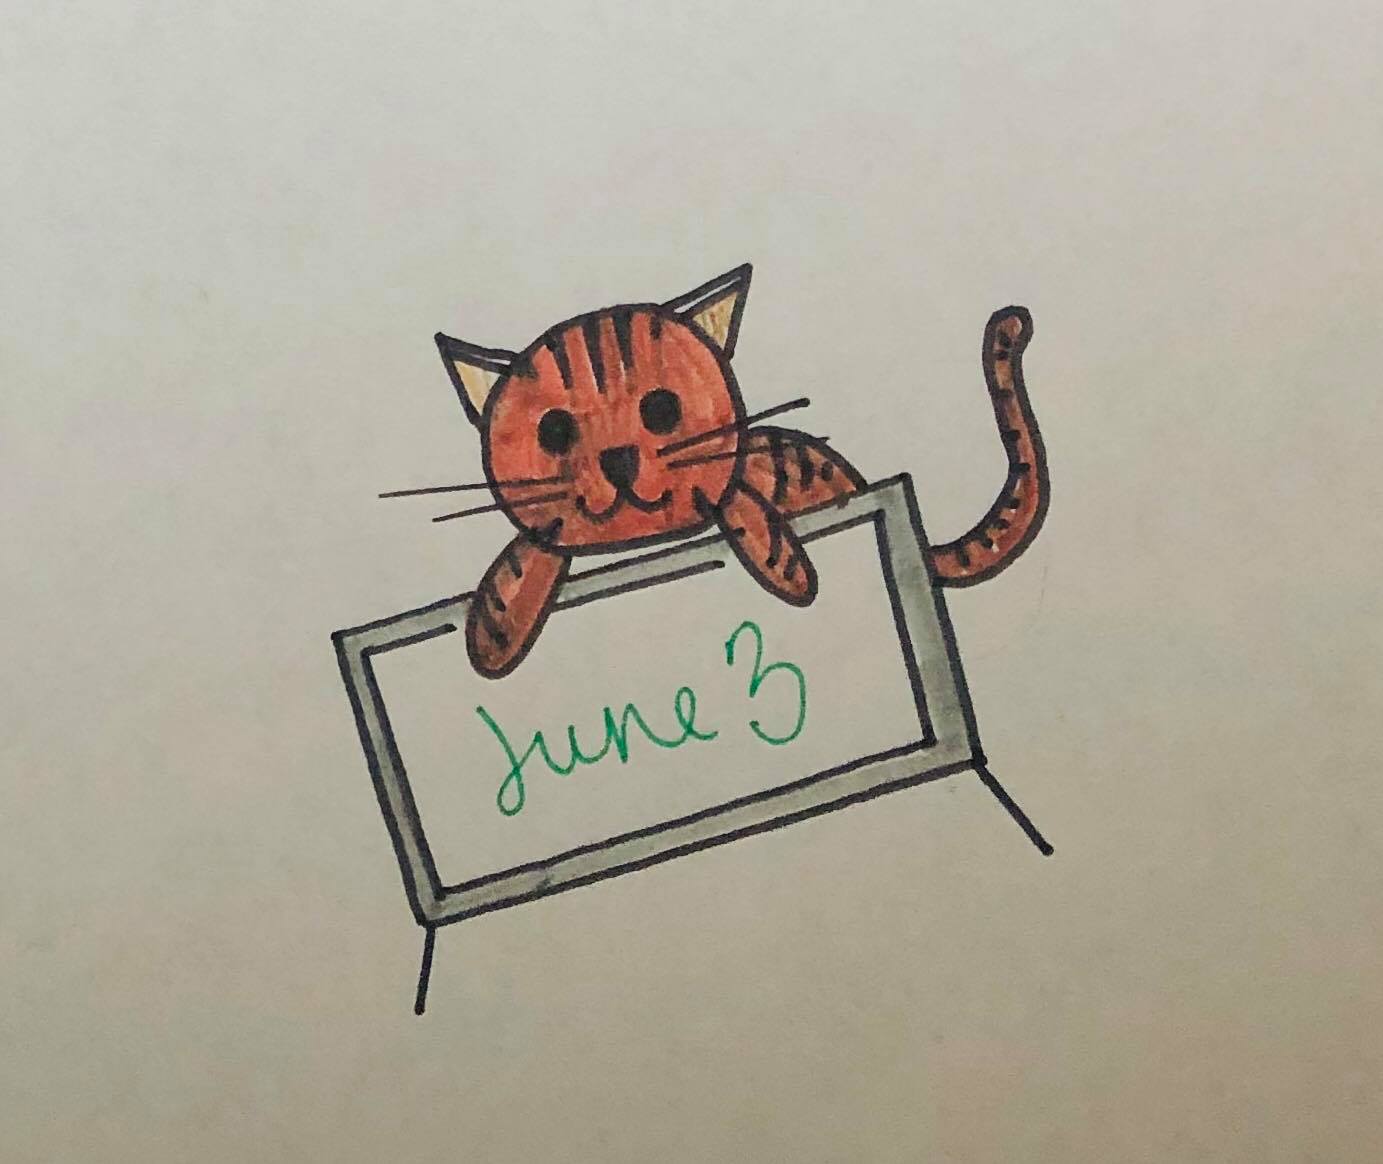 June 3